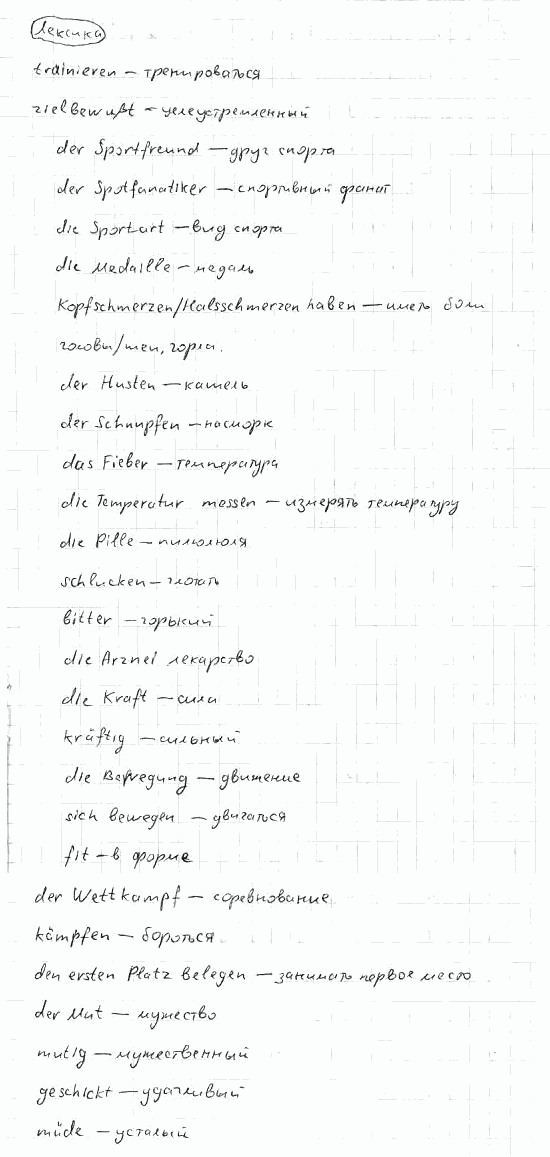 Лексика
trainieren – тренироваться
zielbewußt – целеустремленный
der Sportfreund – друг спорта
der Spotfanatiker – спортивный фанат
die Sportart – вид спорта
die Medaille – медаль
Kopfschmerzen/Halsschmerzen haben – иметь боли
головы/шеи, горла.
der Husten – кашель
der Schnupfen – насморк
das Fieber – температура
die Temperatur messen – измерять температуру
die Pille – пилюля
schlucken – глотать
bitter – горький
die Arznei лекарство
die Kraft – сила
kräftig – сильный
die Bewegung – движение
sich bewegen – двигаться
fit – в форме
der Wettkampf – соревнование
kämpfen – бороться
den ersten Platz belegen – занимать первое место
der Mut – мужество
mutig – мужественный
geschickt – удачливый
müde – усталый